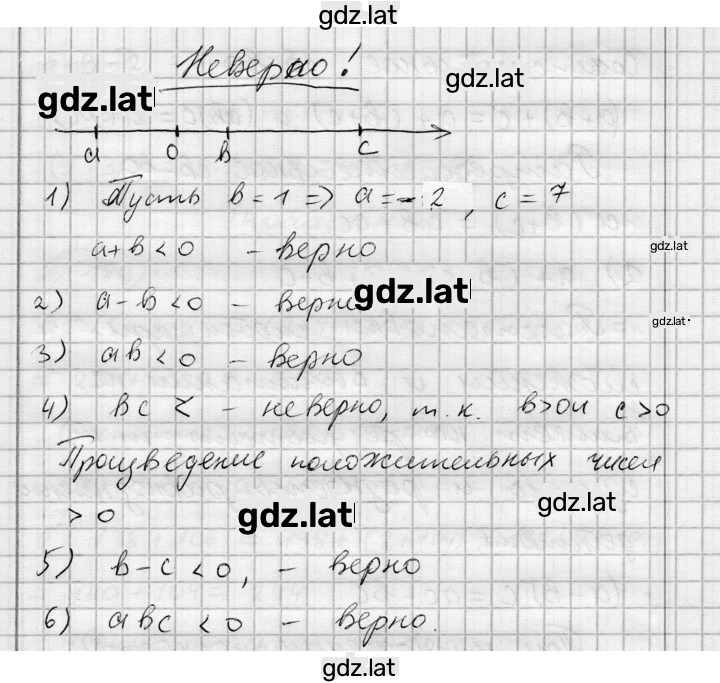 gdz.lat
Неверно!
gdz.lat
gdz.lat
a 0 в c
1) Пусть в = 1 => a = - 2, c = 7
a + в < 0 - верно
gdz.lat
2) a - в < 0 - верно
gdz.lat
gdz.lat
3) aв < 0 - верно
4) вc < - неверно, т.к. в>0 и c>0
Произведение положительных чисел
> 0
gdz.lat
gdz.lat
5) в - c < 0, - верно
6) aвc < 0 - верно.
gdz.lat